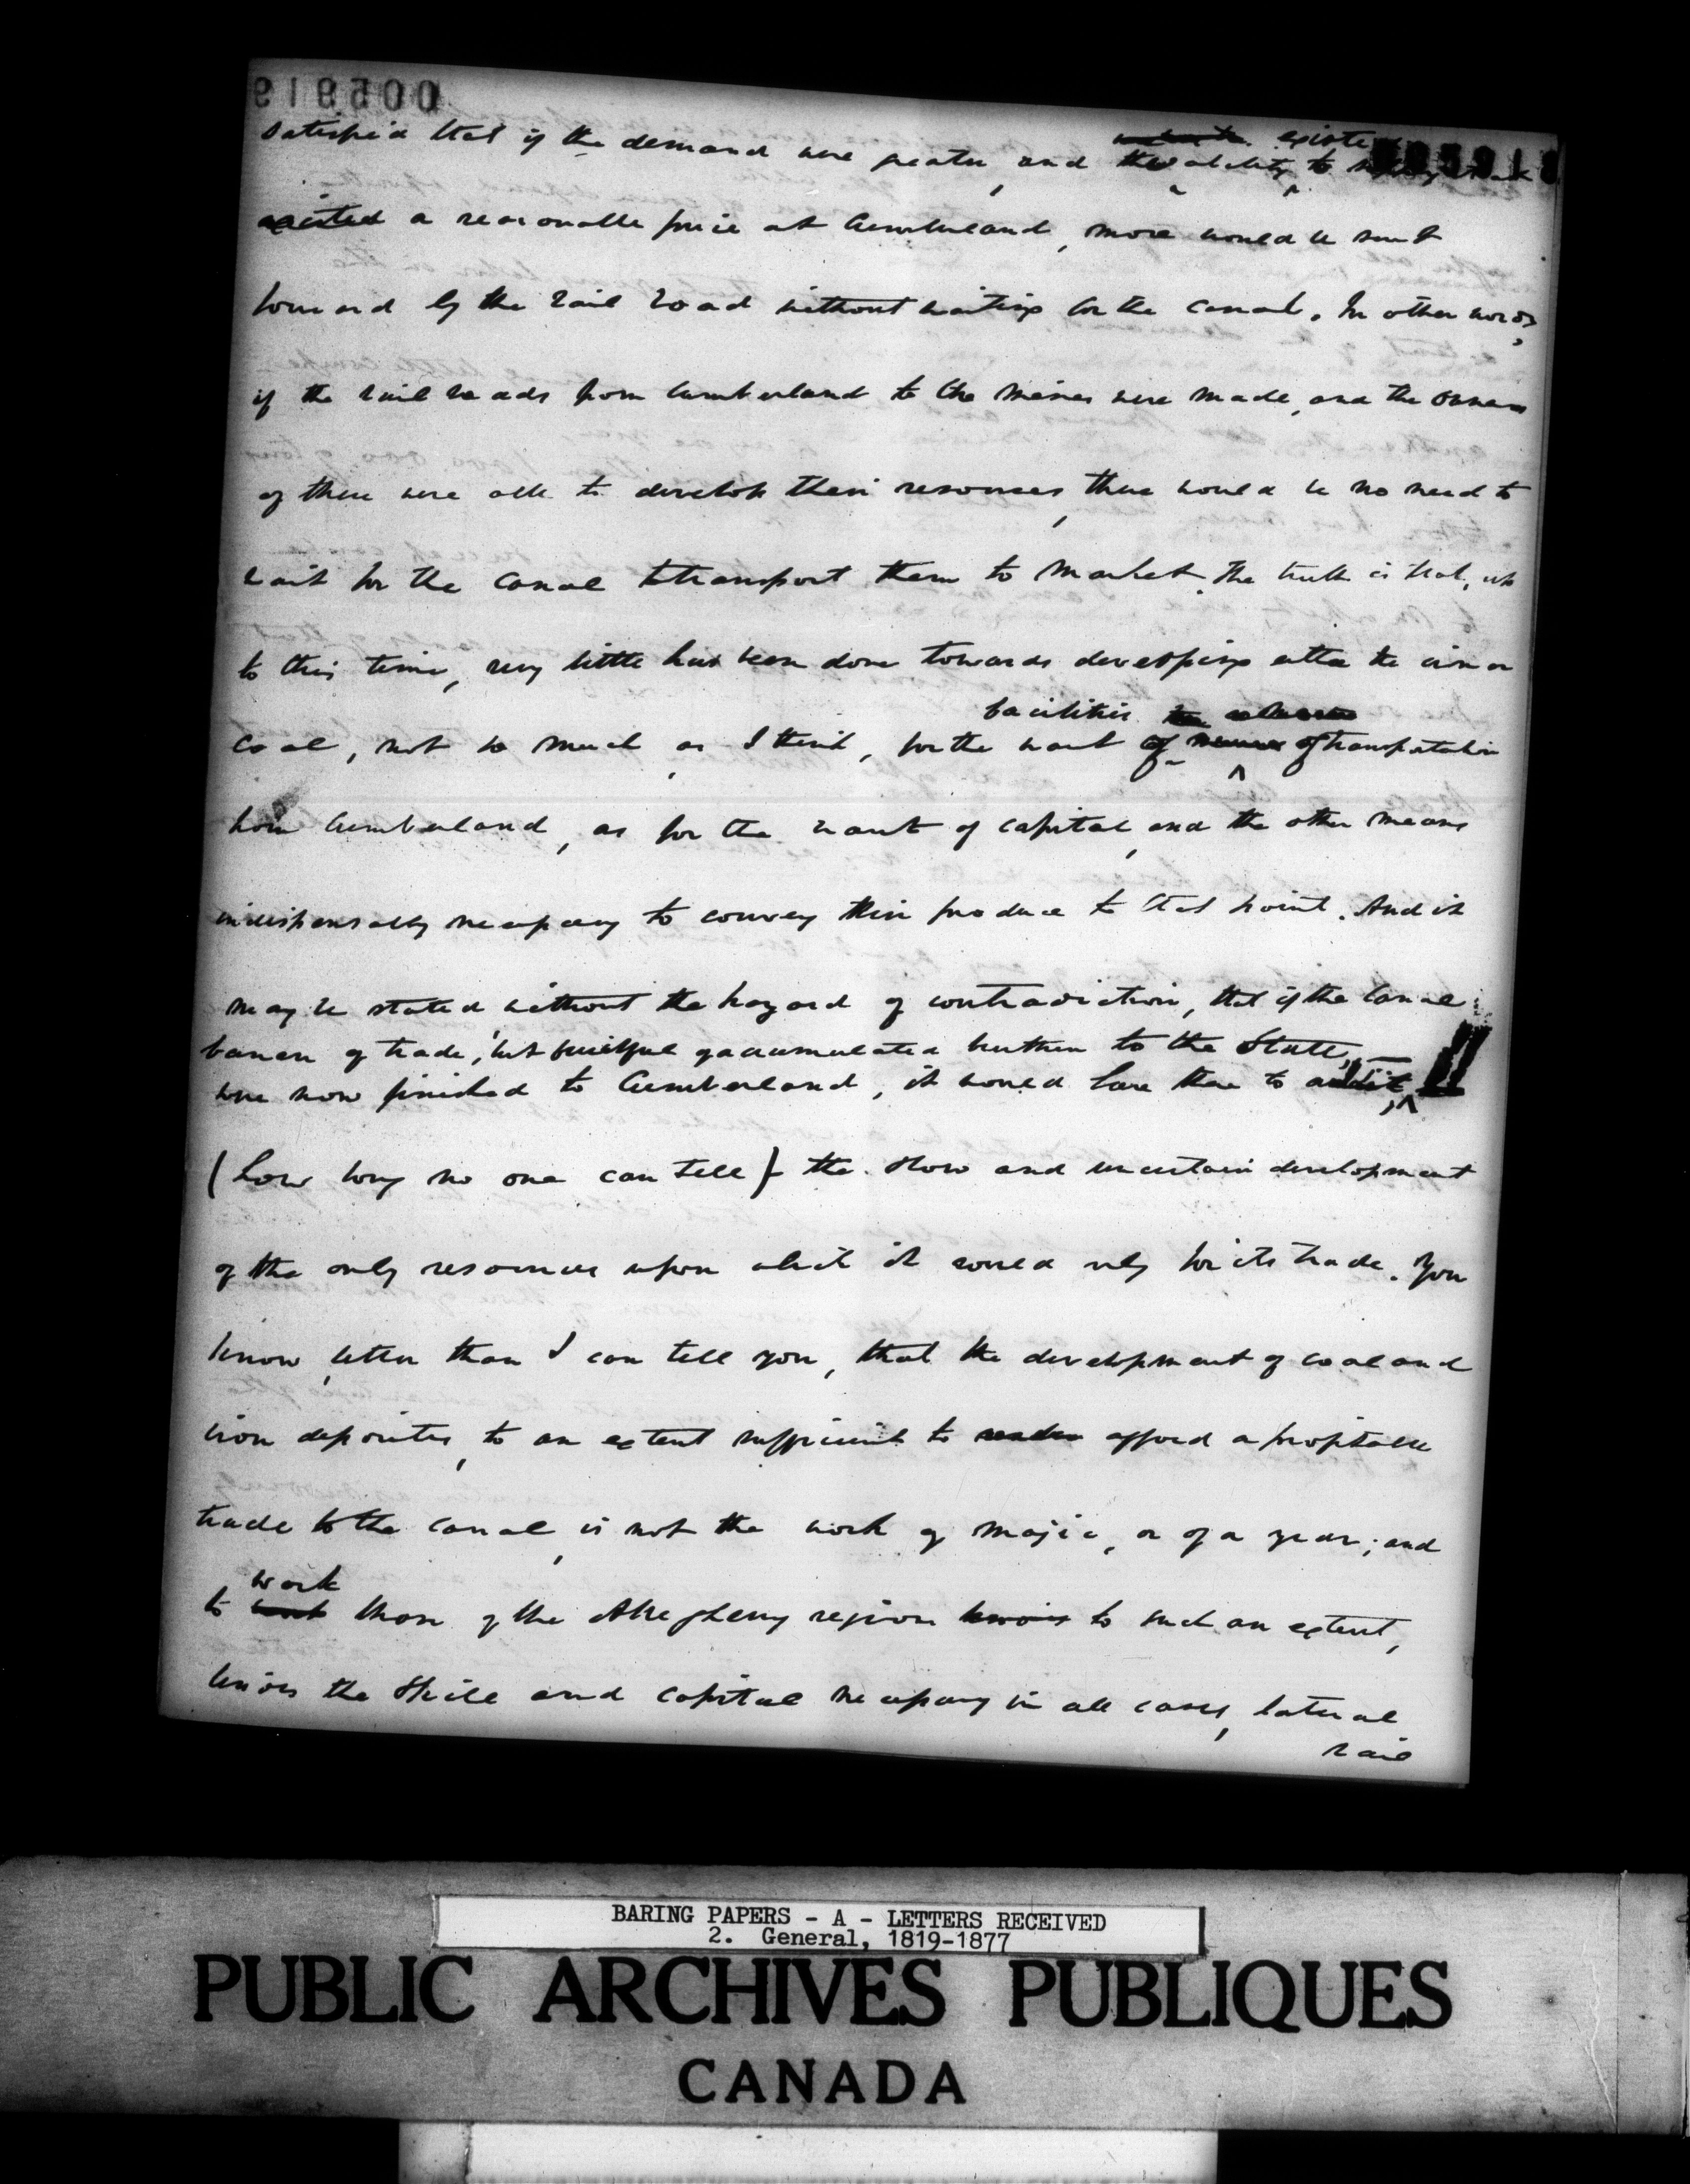 005819
005818
existed
satisfied that if the demand were greater, and the ability to supply it at
existed a reasonable price at Cumberland, more would be sent
forward by the rail road without waiting for the canal. In other words,
if the rail roads from Cumberland to the mines were made, and the owners
of these were able to develop their resources, there would be no need to
wait for the canal to transport them to market. The truth is that, up
to this time, very little has been done towards developing either the iron or
facilities
coal, not so much, as I think, for the want of means of transportation
from Cumberland, as for the want of capital, and the other means
indispensably necessary to convey their produce to that point. And it
may be stated without the hazard of contradiction, that if the Canal
barren of trade, but fruitful of accumulated burthen to the State,
were now finished to Cumberland, it would have there to await,
(how long no one can tell) the slow and uncertain development
of the only resources upon which it could rely for its trade. You
know, better than I can tell you, that the development of coal and
iron deposites, to an extent sufficient to render afford a profitable
trade to the canal, is not the work of majic, or of a year; and
work
to work those of the Allegheny region to such an extent,
besides the skill and capital necessary in all cases, lateral
rail
BARING PAPERS - A - LETTERS RECEIVED
2. General, 1819-1877
PUBLIC ARCHIVES PUBLIQUES
CANADA